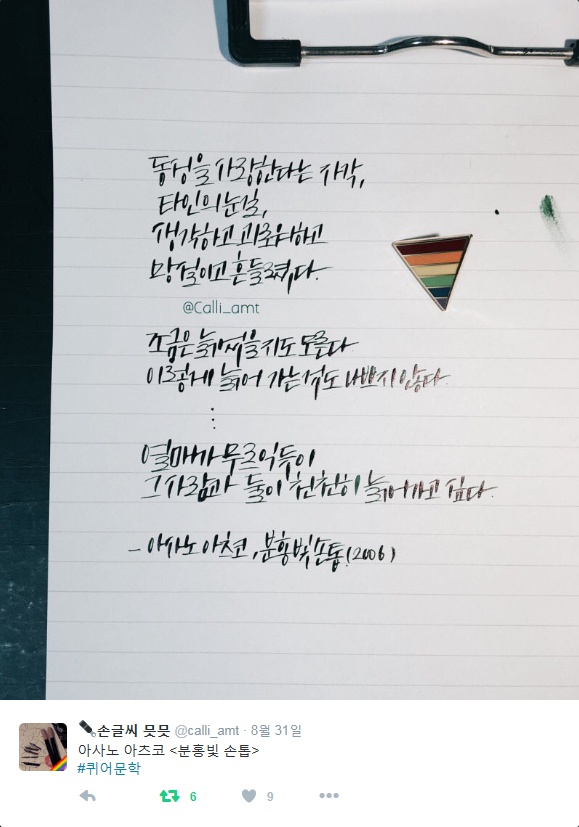 동성을 사랑한다는 자각,
타인의 눈길,
생각하고 괴로워하고
망설이고 흔들렸다.
@Calli_amt
조금은 늙었을지도 모른다
이렇게 늙어 가는 것도 나쁘지 않다.
⋮
열매가 무르익듯이
그 사람과 둘이 천천히 늙어가고 싶다.
- 아사노 아츠코, 분홍빛 손톱(2006)
손글씨 믓믓 @calli_amt · 8월 31일
아사노 아츠코 <분홍빛 손톱>
#퀴어문학
6 9